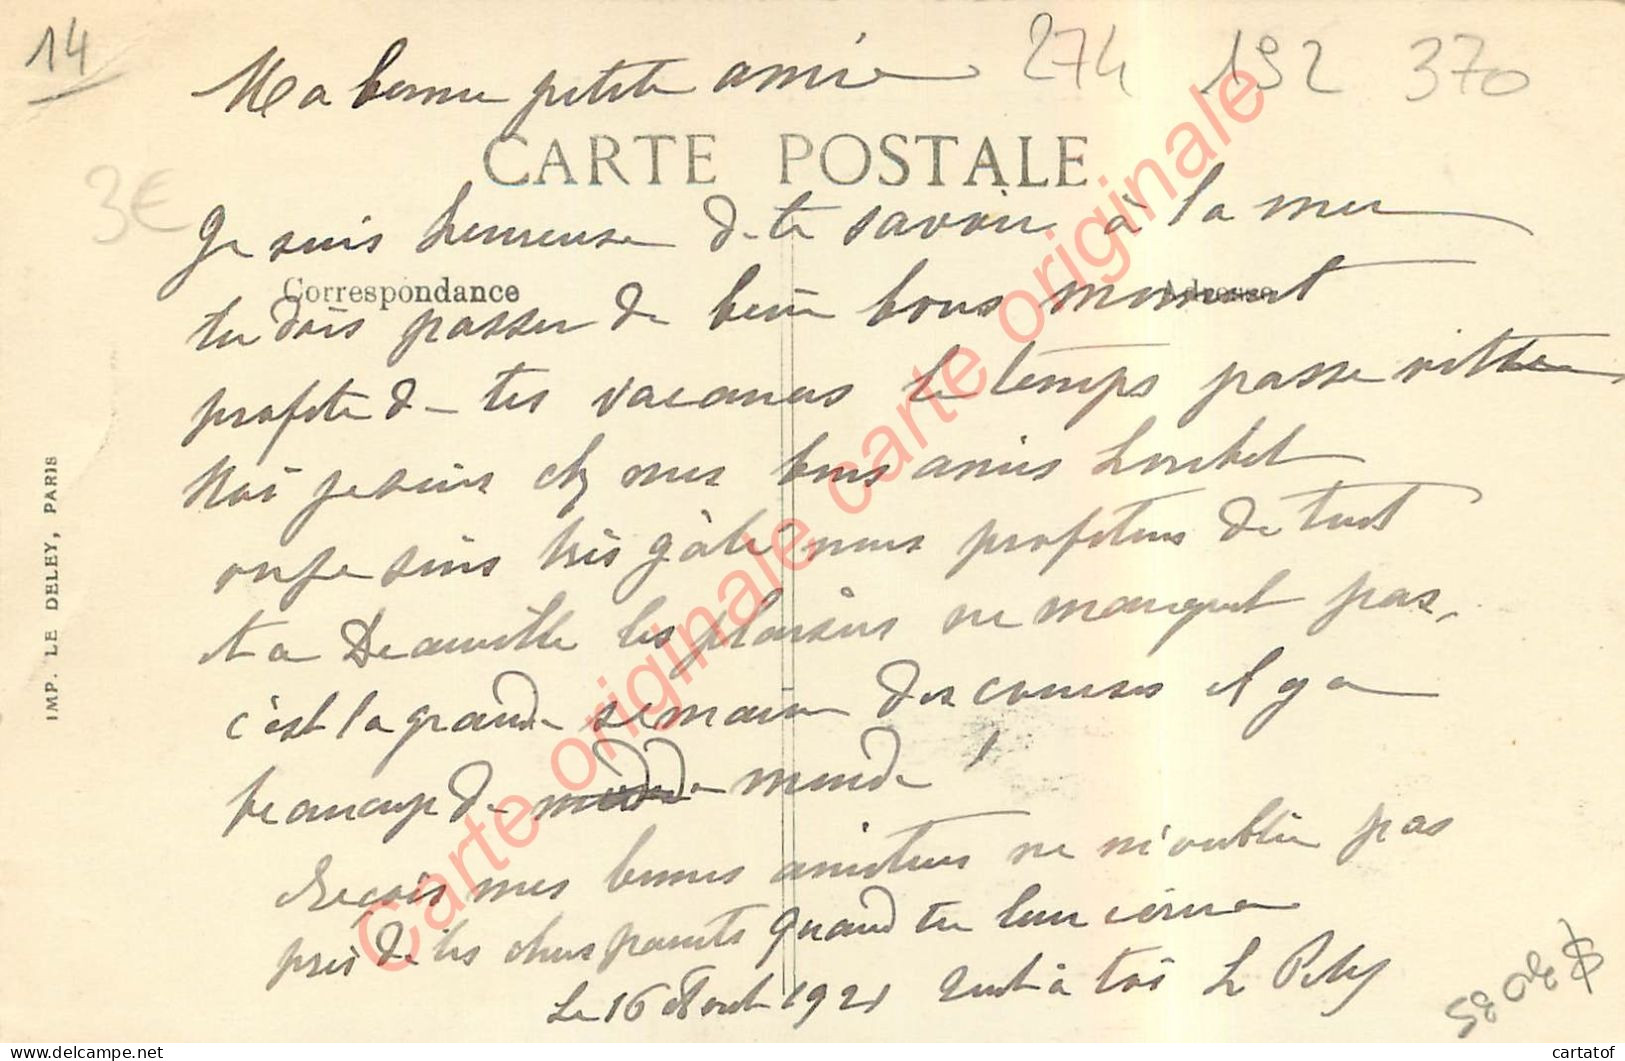 14
Ma bonne petite amie 274 192 370
CARTE POSTALE
3€
Je suis heureuse de te savoir à la mer
Correspondance Adresse
tu dois passer de bein bons moment
profite de tes vacances le temps passe vitte
Moi je suis chez mes bons amis Loubet
ou je suis très gâté nous profitons de tout
et a Deauville les plaisirs ne manquent pas,
c'est la grande semaine des courses il y a
beaucoup de monde
Reçois mes bonnes amitiers ne m'oublie pas
près de tes chers parents quand tu leur écriras
Le 16 Août 1921 tout à toi L.
IMP. LE DELEY, PARIS
Carte originale carte originale carte originale
cartatof